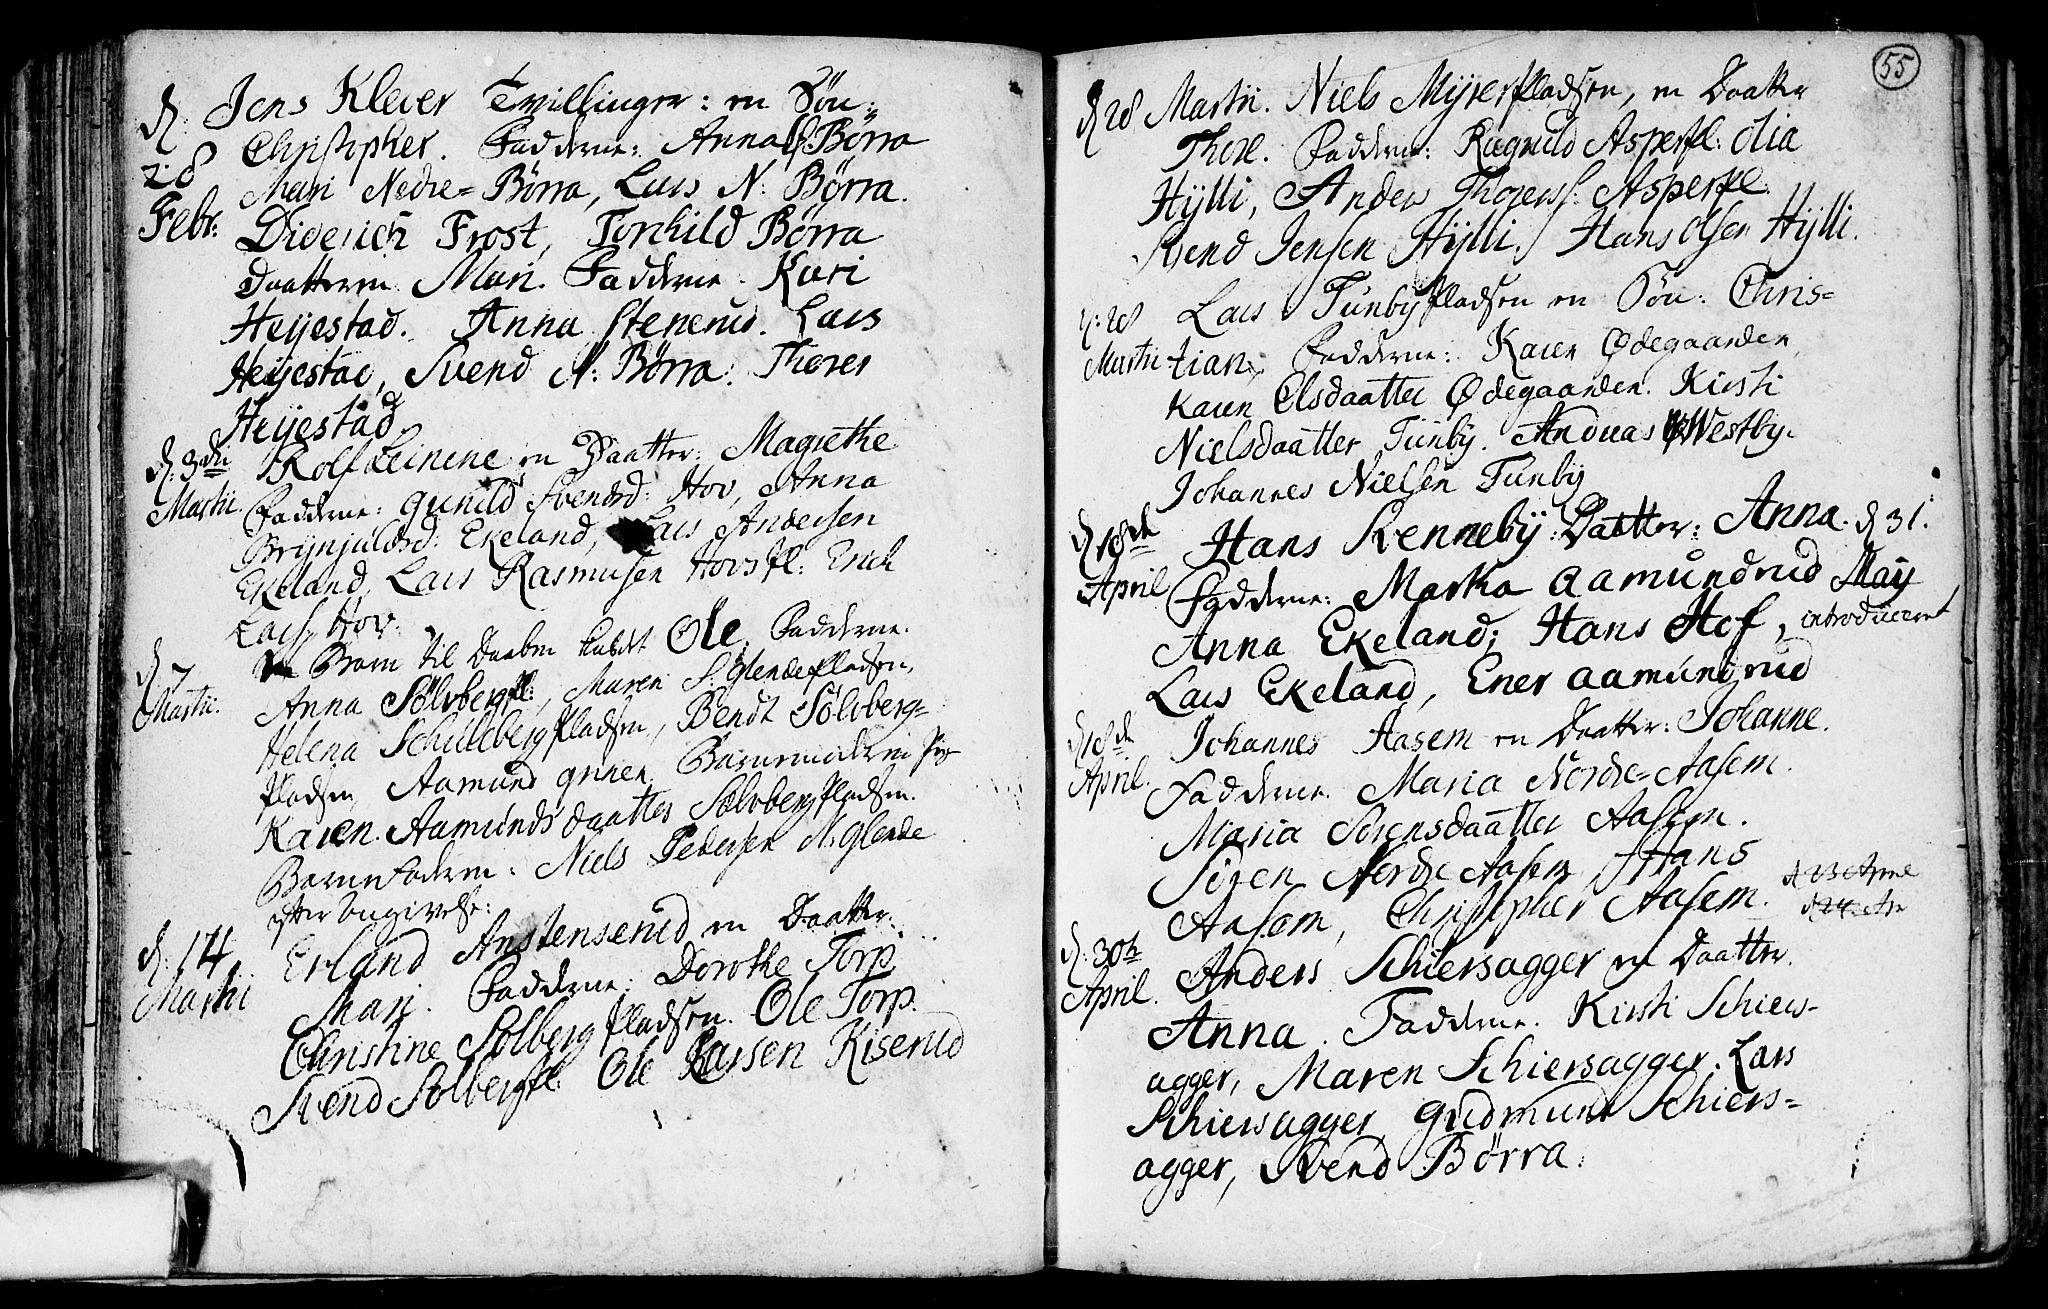 d. 28 Febr: Jens Klever Tvillinger: en Søn:
Christopher. Fadderne: Anna Børra
Mari Nedre=Børra, Lars N: Børra.
Diderich Frost, Torchild Børra
Daatteren Mari. Fadderne. Kari
Heijestad. Anna Stenerud. Lars
Heijestad, Svend N: Børra: Thorer
Heijestad.
d. 3die Martii. Rolf Leinene en Daatter: Magrethe
Fadderne: Gunild Svendsd: Hov, Anna
Brynjuldsd: Ekeland, Lars Andersen
Ekeland, Lars Rasmusen Hovspl: Erich
Lars: Hov.
d. 7 Martii. Barn til Daaben kaldt Ole. Fadderne.
Anna Sølvbergpl:, Maren S: Glende Pladsen,
Helena Schulebergpladsen, Bendt Sølvberg=
Pladsen, Aamund Grinen. Barnemoderen Pig
Karen Aamundsdaatter Sølvbergpladsen.
Barnefaderen: Niels Pedersen N: Glende
efter Angivelse:
d. 14 Martii Erland Anstenserud en Daatter:
Mari. Fadderne: Dorothe Torp
Christine Solbergpladsen. Ole Torp.
Svend Solbergpl: Ole Larsen Kiserud
55
d 28 Martii. Niels Myrerpladsen, en Daatter
Thore. Fadderne: Ragnild Asperpl: Olia
Hylli, Anders Thorers: Asperpl.
Svend Jensen Hylli. Hans Olsen Hylli.
d: 28 Martii Lars Tunbypladsen en Søn: Chris=
tian, Fadderne: Karen Ødegaarden,
Karen Elsdaatter Ødegaarden. Kirsti
Nielsdaatter Tunby. Andreas Westby.
Johannes Nielsen Tunby
d 18de April Hans Renneby: Datter: Anna. d 31.
Fadderne: Marta Aamundrud Maij
Anna Ekeland; Hans Hof, introduceret
Lars Ekeland, Ener Aamundrud
d 18de April. Johannes Aasem en Daatter: Johanne.
Fadderne. Maria Nordre=Aasem.
Maria Sørensdaatter Aasem.
Søren Nordre Aasem, Hans
Aasem, Christopher Aasem. d 23 Aprile
d 24 Apr
d. 30te April. Anders Schiersagger en Daatter.
Anna. Fadderne. Kirsti Schiers-
agger, Maren Schiersagger. Lars
Schiersagger, Gudmund Schiers=
agger, Svend Børra.